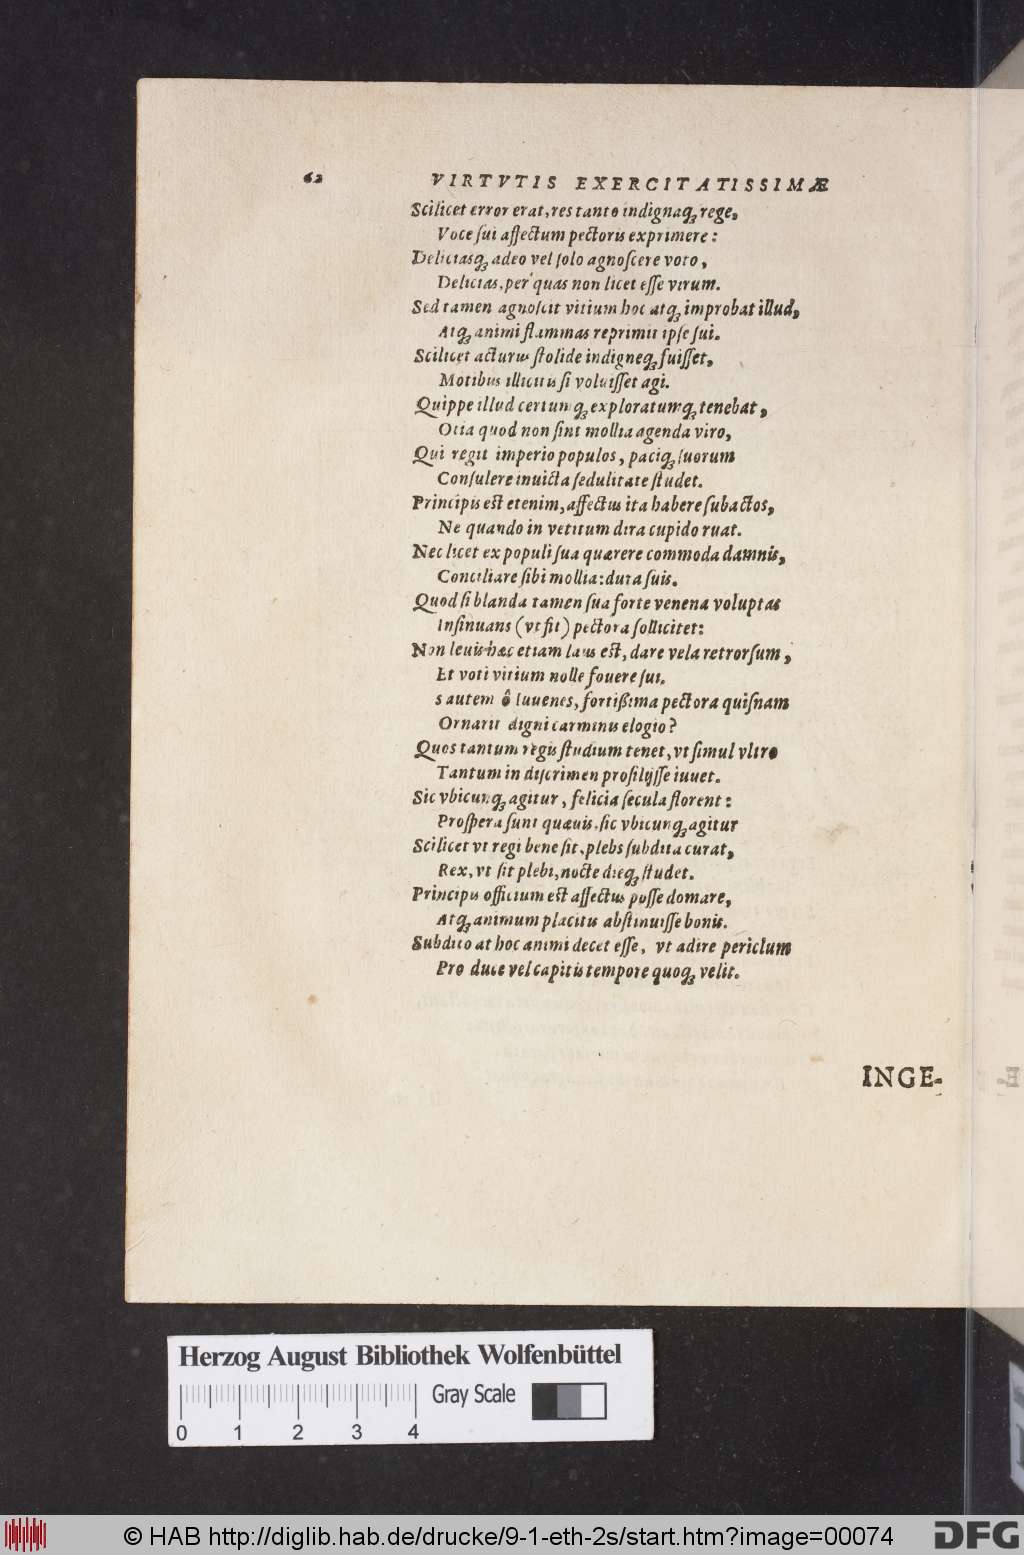 62 VIRTVTIS EXERCITATISSIMÆ
Scilicet error erat, res tanto indignaq́ꝫ rege,
Voce sui affectum pectoris exprimere:
Deliciasq́ꝫ adeo vel solo agnoscere voto,
Delicias, per quas non licet esse virum.
Sed tamen agnoscit vitium hoc atq́ꝫ improbat illud,
Atq́ꝫ animi flammas reprimit ipse sui.
Scilicet acturus stolide indigneq́ꝫ fuisset,
Motibus illicitis si voluisset agi.
Quippe illud certumq́ꝫ exploratumq́ꝫ tenebat,
Otia quod non sint mollia agenda viro,
Qui regit imperio populos, paciq́ꝫ suorum
Consulere inuicta sedulitate studet.
Principis est etenim, affectus ita habere subactos,
Ne quando in vetitum dira cupido ruat.
Nec licet ex populi sua quærere commoda damnis,
Conciliare sibi mollia: dura suis.
Quod si blanda tamen sua forte venena voluptas
Insinuans (vt fit) pectora sollicitet:
Non leuis hæc etiam laus est, dare vela retrorsum,
Et voti vitium nolle fouere sui.
s autem ô Iuuenes, fortißima pectora quisnam
Ornarit digni carminis elogio?
Quos tantum regis studium tenet, vt simul vltro
Tantum in discrimen prosilijsse iuuet.
Sic vbicunq́ꝫ agitur, felicia secula florent:
Prospera sunt quæuis, sic vbicunq́ꝫ agitur
Scilicet vt regi bene sit, plebs subdita curat,
Rex, vt sit plebi, nocte dieq́ꝫ studet.
Principis officium est affectus posse domare,
Atq́ꝫ animum placitis abstinuisse bonis.
Subdito at hoc animi decet esse, vt adire periclum
Pro duce vel capitis tempore quoq́ꝫ velit.
INGE-
Herzog August Bibliothek Wolfenbüttel
Gray Scale
0 1 2 3 4
© HAB http://diglib.hab.de/drucke/9-1-eth-2s/start.htm?image=00074
DFG